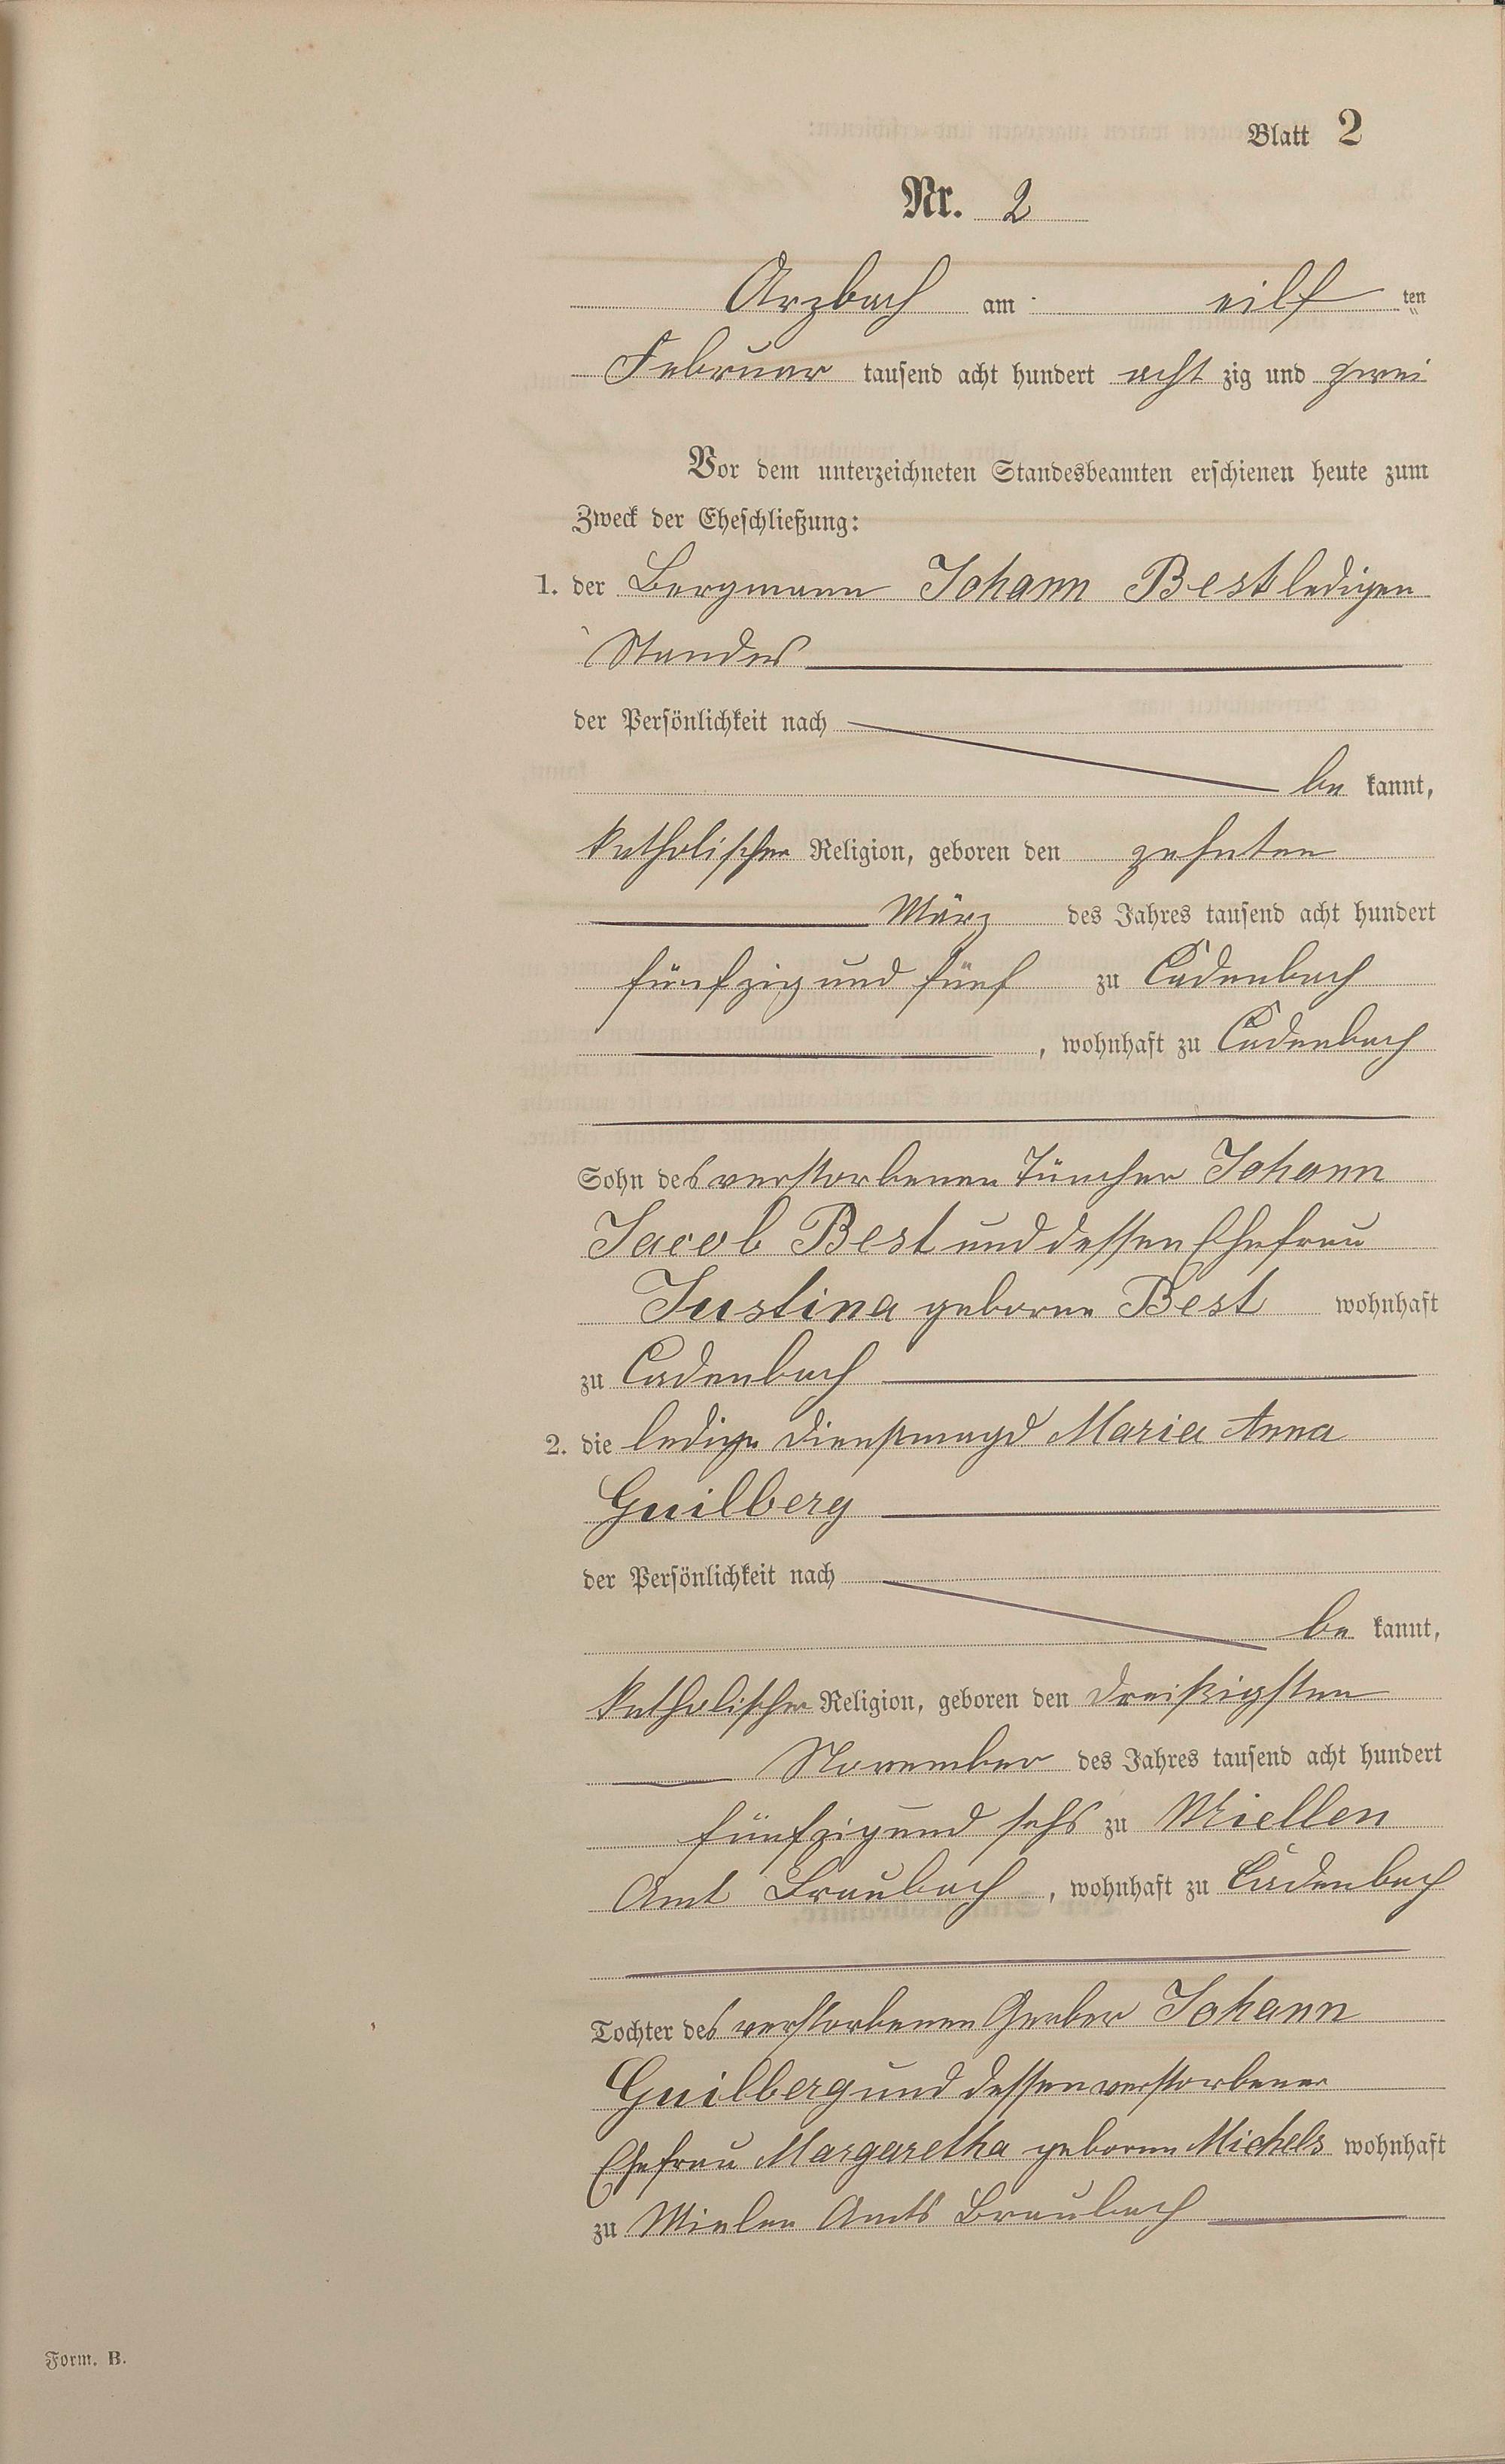 Blatt 2
Nr. 2
Arzbach am eilf ten
Februar tausend acht hundert acht zig und zwei
Vor dem unterzeichneten Standesbeamten erschienen heute zum
Zweck der Eheschließung:
1. der Bergmann Johann Best ledigen
Standes
der Persönlichkeit nach
be kannt,
katholischer Religion, geboren den zehnten
März des Jahres tausend acht hundert
fünfzig und fünf zu Cadenbach
, wohnhaft zu Cadenbach
Sohn des verstorbenen Tüncher Johann
Jacob Best und dessen Ehefrau
Justina geborne Best wohnhaft
zu Cadenbach
2. die ledige Dienstmagd Maria Anna
Guilberg
der Persönlichkeit nach
be kannt,
katholischer Religion, geboren den dreißigsten
November des Jahres tausend acht hundert
fünfzig und sechs zu Miellen
Amt Braubach , wohnhaft zu Cadenbach
Tochter des verstorbenen Gerber Johann
Guilberg und dessen verstorbener
Ehefrau Margaretha geborne Michels wohnhaft
zu Mielen Amts Braubach
Form. B.